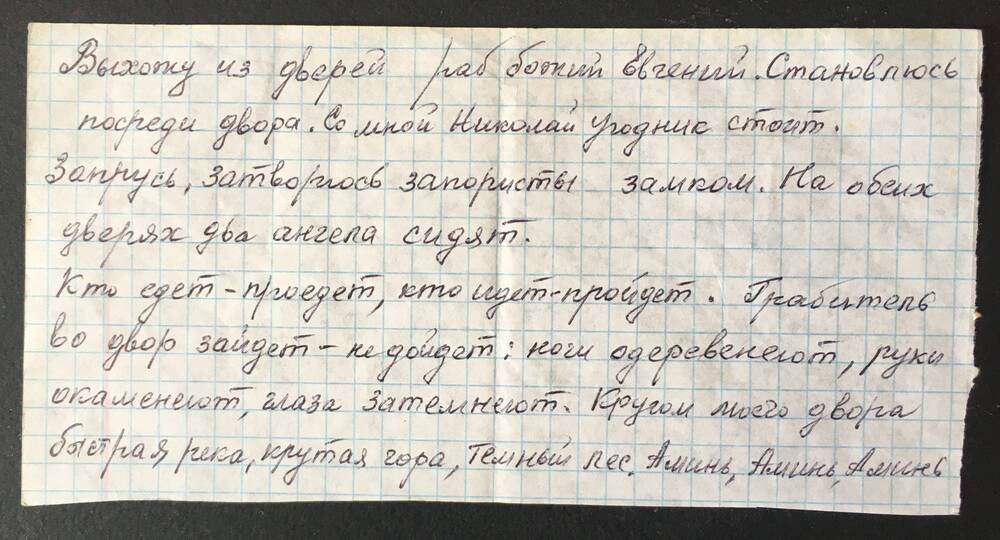 Выхожу из дверей раб божий Евгений. Становлюсь
посреди двора. Со мной Николай Угодник стоит.
Запрусь, затворюсь запористы замком. На обеих
дверях два ангела сидят.
Кто едет - проедет, кто идет - пройдет. Грабитель
во двор зайдет - не дойдет: ноги одеревенеют, руки
окаменеют, глаза затемнеют. Кругом моего двора
быстрая река, крутая гора, темный лес. Аминь, Аминь, Аминь